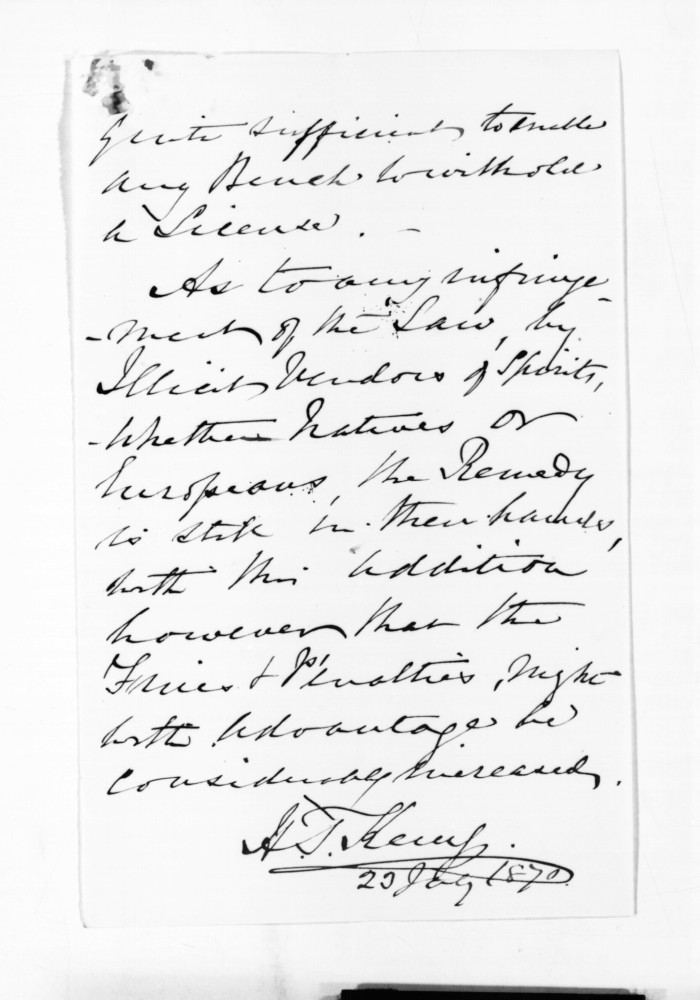 Quite sufficient to enable
any Bench to withold
a License. -
As to any infringe
-ment of the Law, by
Illicit Vendors of Spirits,
-Whether Natives or
Europeans, the Remedy
is still in their hands,
with this addition
however that the
Fines & Penalties, might
with advantage be
considerably increased.
H. T. Kemp.
23 July 1870.